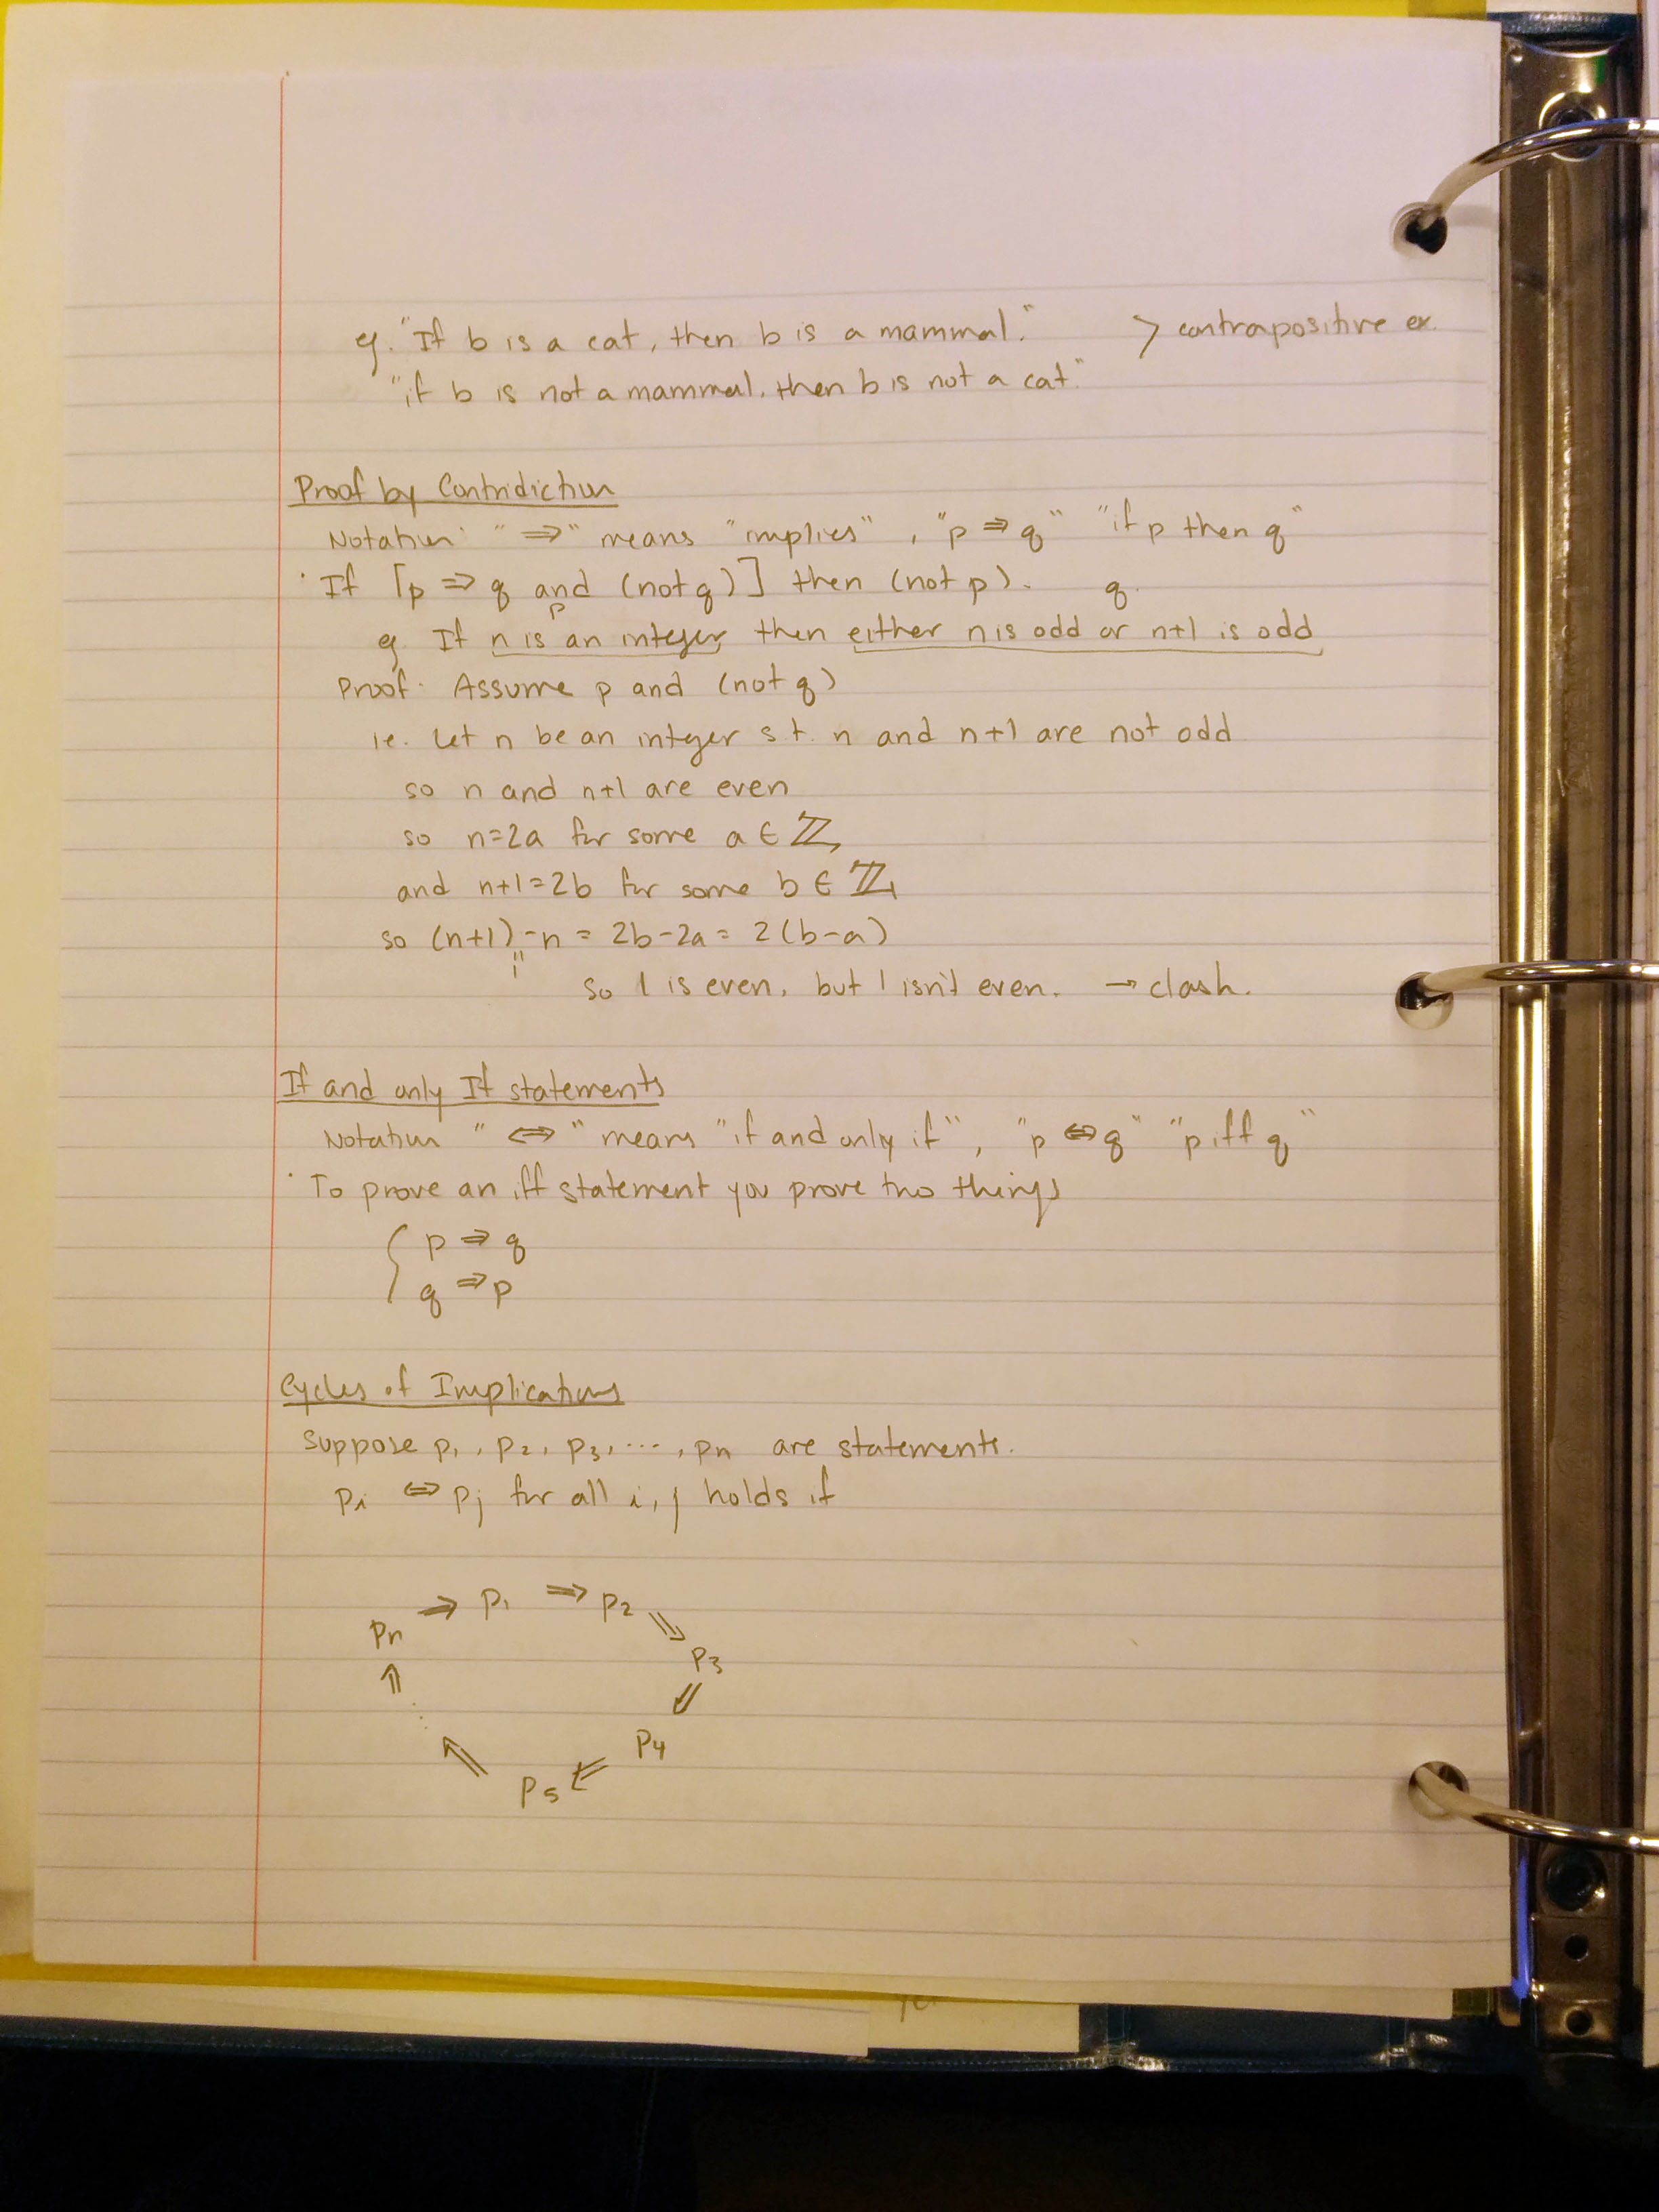 eg. "If b is a cat, then b is a mammal." > contrapositive ex.
"if b is not a mammal, then b is not a cat."
Proof by Contridiction
Notation: "⇒" means "implies", "p ⇒ q" "if p then q"
· If [p ⇒ q and (not q)] then (not p).
p q
eg. If n is an integer then either n is odd or n+1 is odd
Proof: Assume p and (not q)
ie. Let n be an integer s.t. n and n+1 are not odd
so n and n+1 are even
so n=2a for some a ∈ ℤ,
and n+1=2b for some b ∈ ℤ,
so (n+1)-n = 2b-2a = 2(b-a)
"
1
so 1 is even, but 1 isn't even. → clash.
If and only If statements
Notation "⇔" means "if and only if", "p ⇔ q" "p iff q"
· To prove an iff statement you prove two things
{ p ⇒ q
q ⇒ p
Cycles of Implications
Suppose p₁, p₂, p₃, ..., pn are statements.
pi ⇔ pj for all i, j holds if
pn ⇒ p₁ ⇒ p₂
⇒ p₃
⇒ p₄
⇒ p₅
⇒ ... ⇒